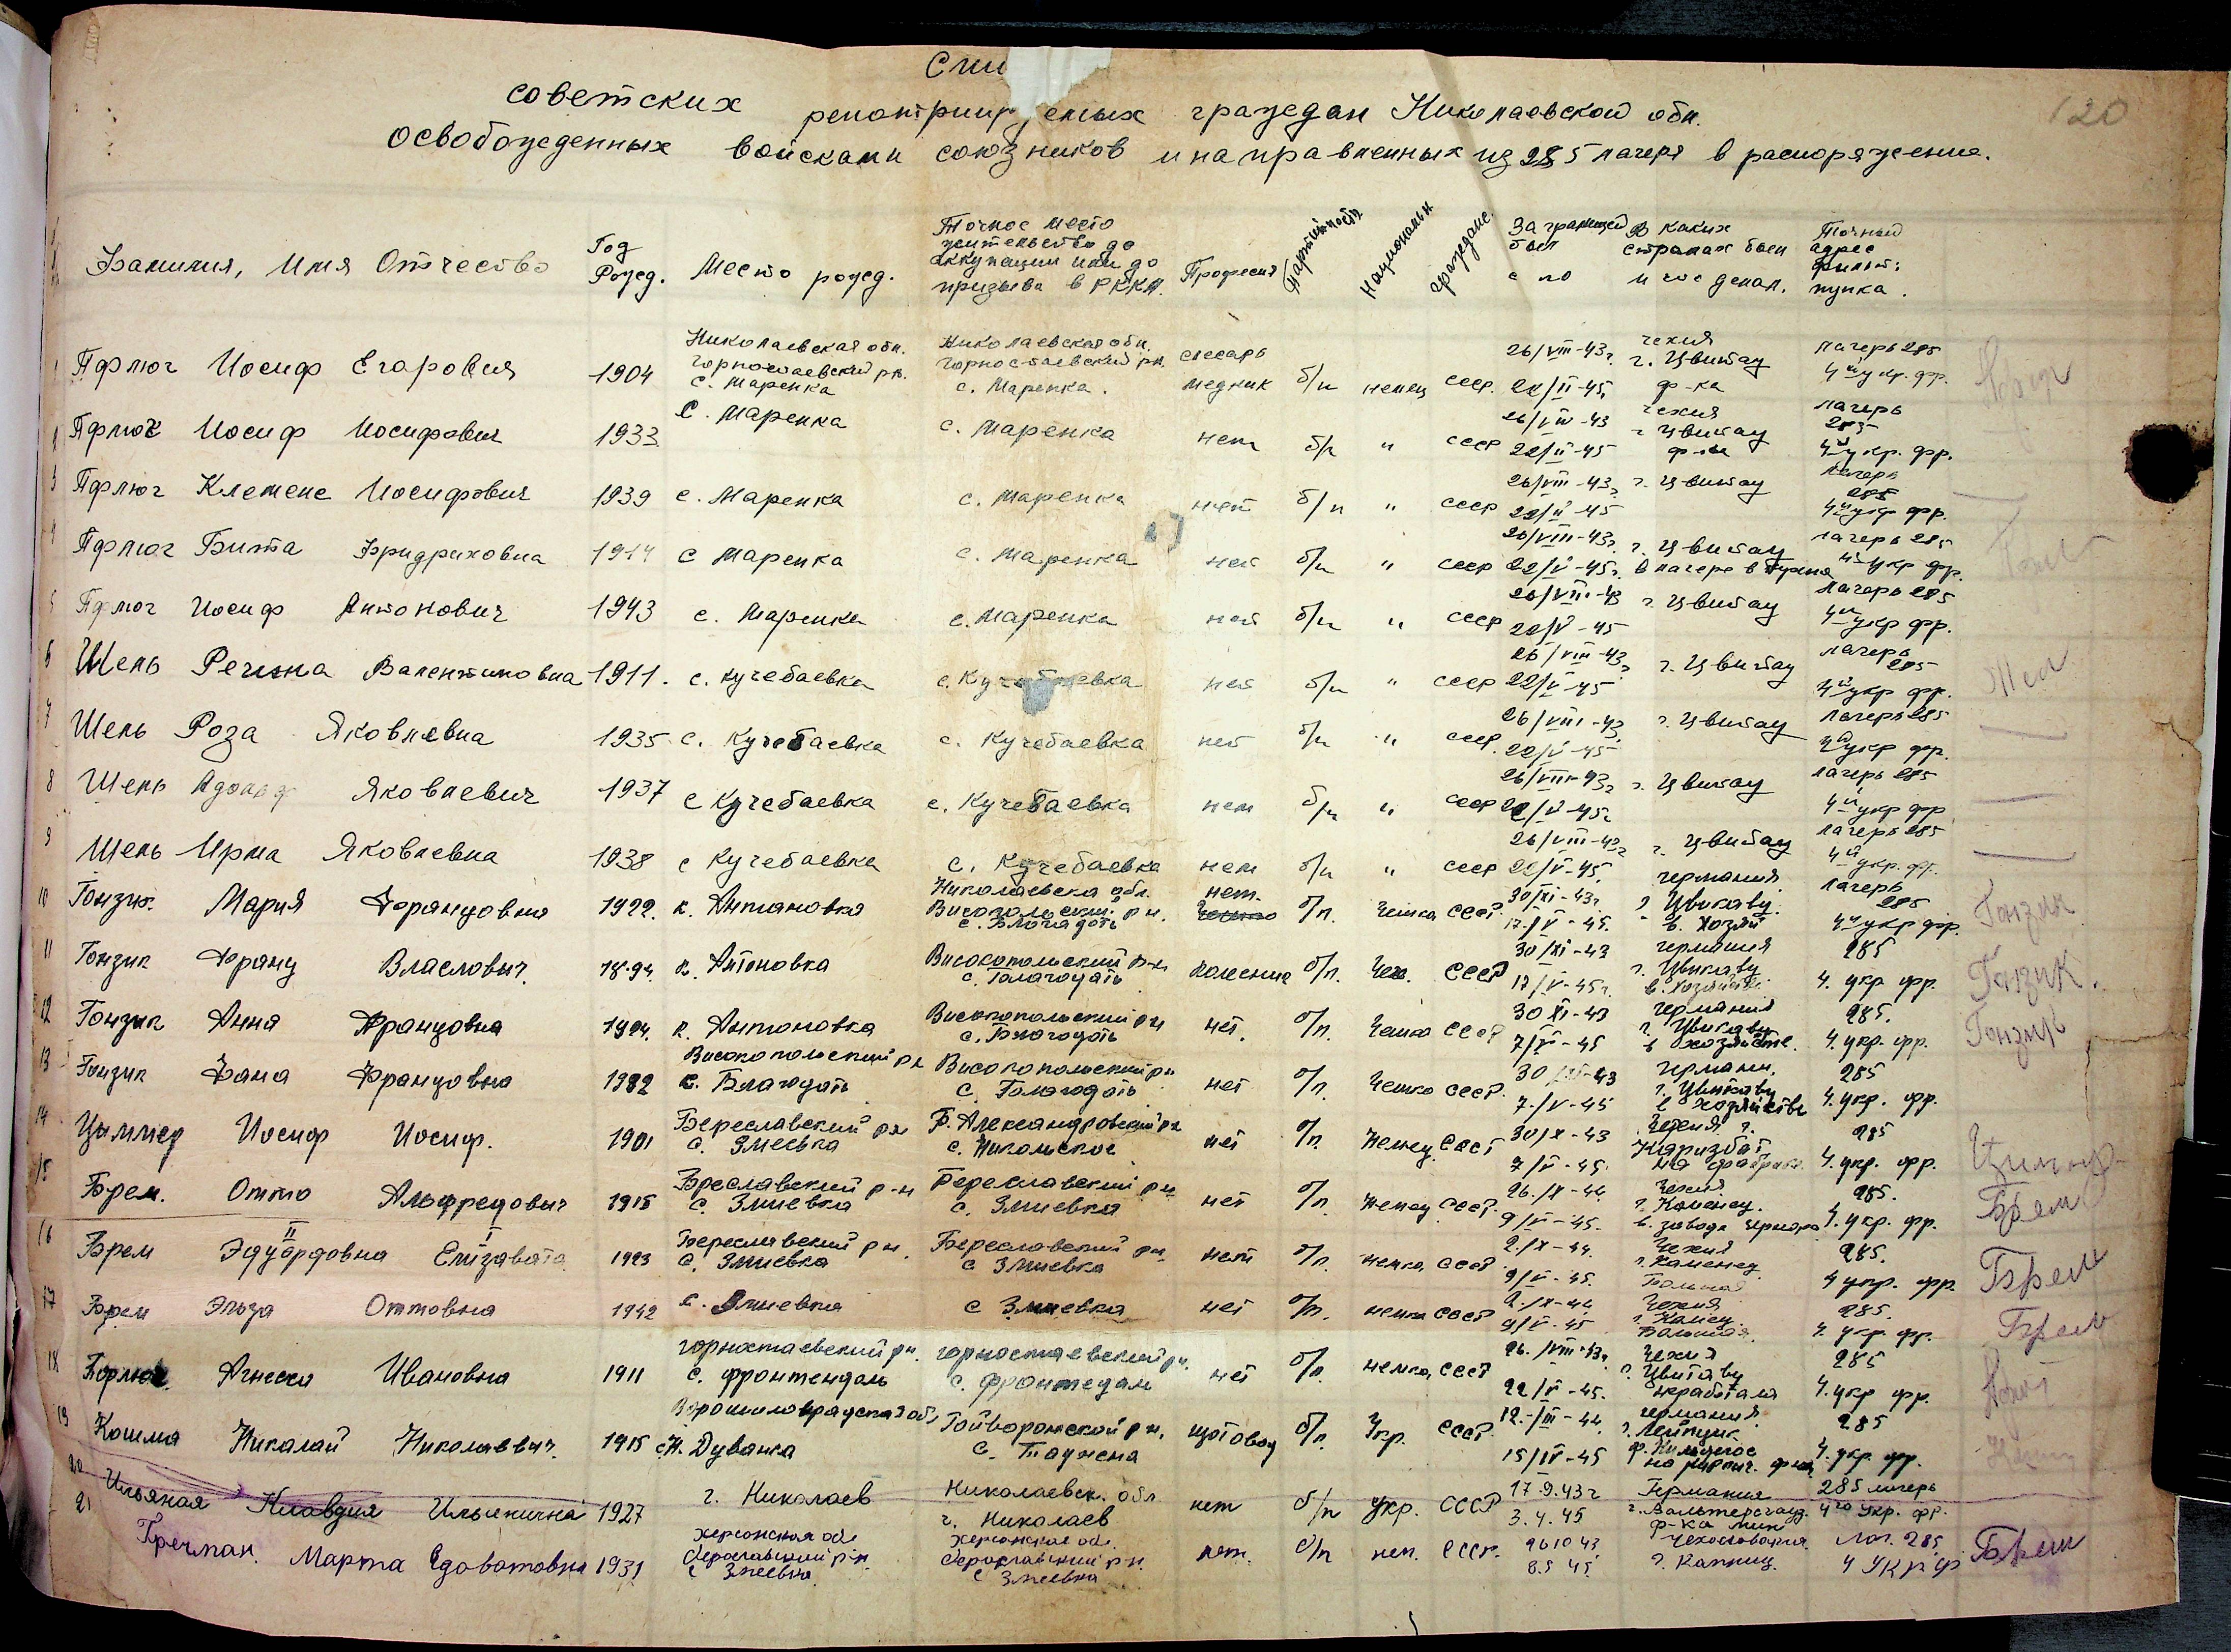 Спи
советских репатриируемых граждан Николаевской обл.
освобожденных войсками союзников и направленных из 285 лагеря в распоряжение.
120
Фамилия, Имя Отчество Год Рожд. Место рожд. Точное место жительство до оккупации или до призыва в РККА. Професия Партийность Национальн гражданс. За границей был с по В каких странах был и что делал. Точный адрес фильт: пункта.
1 Пфлюг Иосиф Егарович 1904 Николаевская обл. Горностаевский рн. с. Маренка Николаевская обл. Горностаевский рн. с. Маренка. слесарь медник б/п немец ссср. 26/VIII-43г 22/II-45г Чехия г. Цвитау ф-ка лагерь 285 4й укр. фр.
2 Пфлюг Иосиф Иосифович 1933 с. Маренка с. Маренка нет б/п " ссср 26/VIII-43 22/II-45 Чехия г. Цвитау ф-ка лагерь 285 4й укр. фр.
3 Пфлюг Клеменс Иосифович 1939 с. Маренка с. Маренка нет б/п " ссср 26/VIII-43г 22/V-45 г. Цвитау лагерь 285 4й укр фр.
4 Пфлюг Бита Фридриховна 1914 с Маренка с. Маренка нет б/п " ссср 26/VIII-43г. 22/V-45г. г. Цвитау в лагере лагерь 285 4й укр фр.
5 Пфлюг Иосиф Антонович 1943 с. Маренка с. Маренка нет б/п " ссср 26/VIII-43 22/V-45 г. Цвитау лагерь 285 4й укр фр.
6 Шель Регина Валентиновна 1911. с. Кучебаевка с. Кучебаевка нет б/п " ссср 26/VIII-43г 22/V-45 г. Цвитау лагерь 285 4й укр фр.
7 Шель Роза Яковлевна 1935 с. Кучебаевка с. Кучебаевка нет б/п " ссср. 26/VIII-43. 22/V-45 г. Цвитау лагерь 285 4й укр фр.
8 Шель Адольф Яковлевич 1937 с Кучебаевка с. Кучебаевка нет б/п " ссср 26/VIII-43г 22/V-45г г. Цвитау лагерь 285 4й укр фр
9 Шель Ирма Яковлевна 1938 с Кучебаевка с. Кучебаевка нет б/п " ссср 26/VIII-43г 22/V-45. г. Цвитау лагерь 285 4й укр. фр.
10 Гонзик Мария Францовна 1922. к. Антановка Николаевска обл. Високопольский рн. нет. б/п. Чешка СССР. 30/XI-43г 17/V-45. Германия г. Цвикаву. в. хозяй лагерь 285 4й укр фр. Гонзик
11 Гонзик Франц Власлович. 1894. к. Антоновка Високопольский р-н б/п. Чех. СССР 30/XI-43 17/V-45г. Германия г. Цвикаву. 285 4. укр фр. Гонзик.
12 Гонзик Анна Францовна 1924. к. Антоновка Високопольский рн с. Благодать нет. б/п. Чешка СССР 30 XI-43 7/V-45 Германия г. Цвикаву в хозяйстве. 285. 4. укр. фр. Гонзик
13 Гонзик Фана Францовна Високопольский рн с. Благодать Високопольский рн нет б/п. Чешка СССР. 7./V-45 г. Цвикаву в хозяйстве 285 4. укр. фр.
14 Цыммер Иосиф Иосиф. 1901 Береславский рн с. Змеевка Б. Александровский рн с. Никольское нет б/п. Немец СССР 30/X-43 7/V-45. Чехия г. на фабрике. 285 4. укр. фр.
15 Брем. Отто Альфредович 1915 Бреславский р-н с. Змиевка Береславский рн с. Змиевка нет б/п. Немец СССР. 26./X-44. 9/V-45. Чехия г. Каменец. в. заводе 285. 4. укр. фр. Брем
16 Брем II Эдуардовна I Елизавата 1923 Береславский рн. с. Змиевка Береславский рн с Змиевка нет б/п. немка СССР. 2./X-44. 9/V-45. Чехия г. Каменец. Больная 285. 4 укр. фр. Брем
17 Брем Эльза Оттовна 1942 с. Змиевка с Змиевка нет б/п. немка СССР 2./X-44 9/V-45 Чехия г. Камец. Больная. 285. 4. укр. фр. Брем
18 Агнеса Ивановна 1911 Горностаевский рн. с. фронтендаль Горностаевский рн. нет б/п. немка СССР 26./VIII-43г. 22/V-45. Чехия г. Цвитаву неработала 285 4. укр фр.
19 Кошмя Николай Николаевич. 1915 Ворошиловградская обл. с Н. Дуванка Гойворонской рн. с. Таужена щотовод б/п. Укр. СССР. 12.-/III-44. 15/IV-45 Германия г. Лейпциг 285 4. укр. фр.
20 Ильяная Клавдия Ильинична 1927 г. Николаев Николаевск. обл. г. Николаев нет б/п укр. СССР 17.9.43г 3.4.45 Германия ф-ка 285 лагерь 4го Укр. фр.
21 Гречман. Марта Едоватовна 1931 Херсонская обл Береславский р-н с Змеевка Херсонская обл. Береславский рн. с Змеевка нет. б/п нем. СССР. 26 10 43 8.5 45. Чехословакия г. Лаг. 285 4 Укр ф Брем